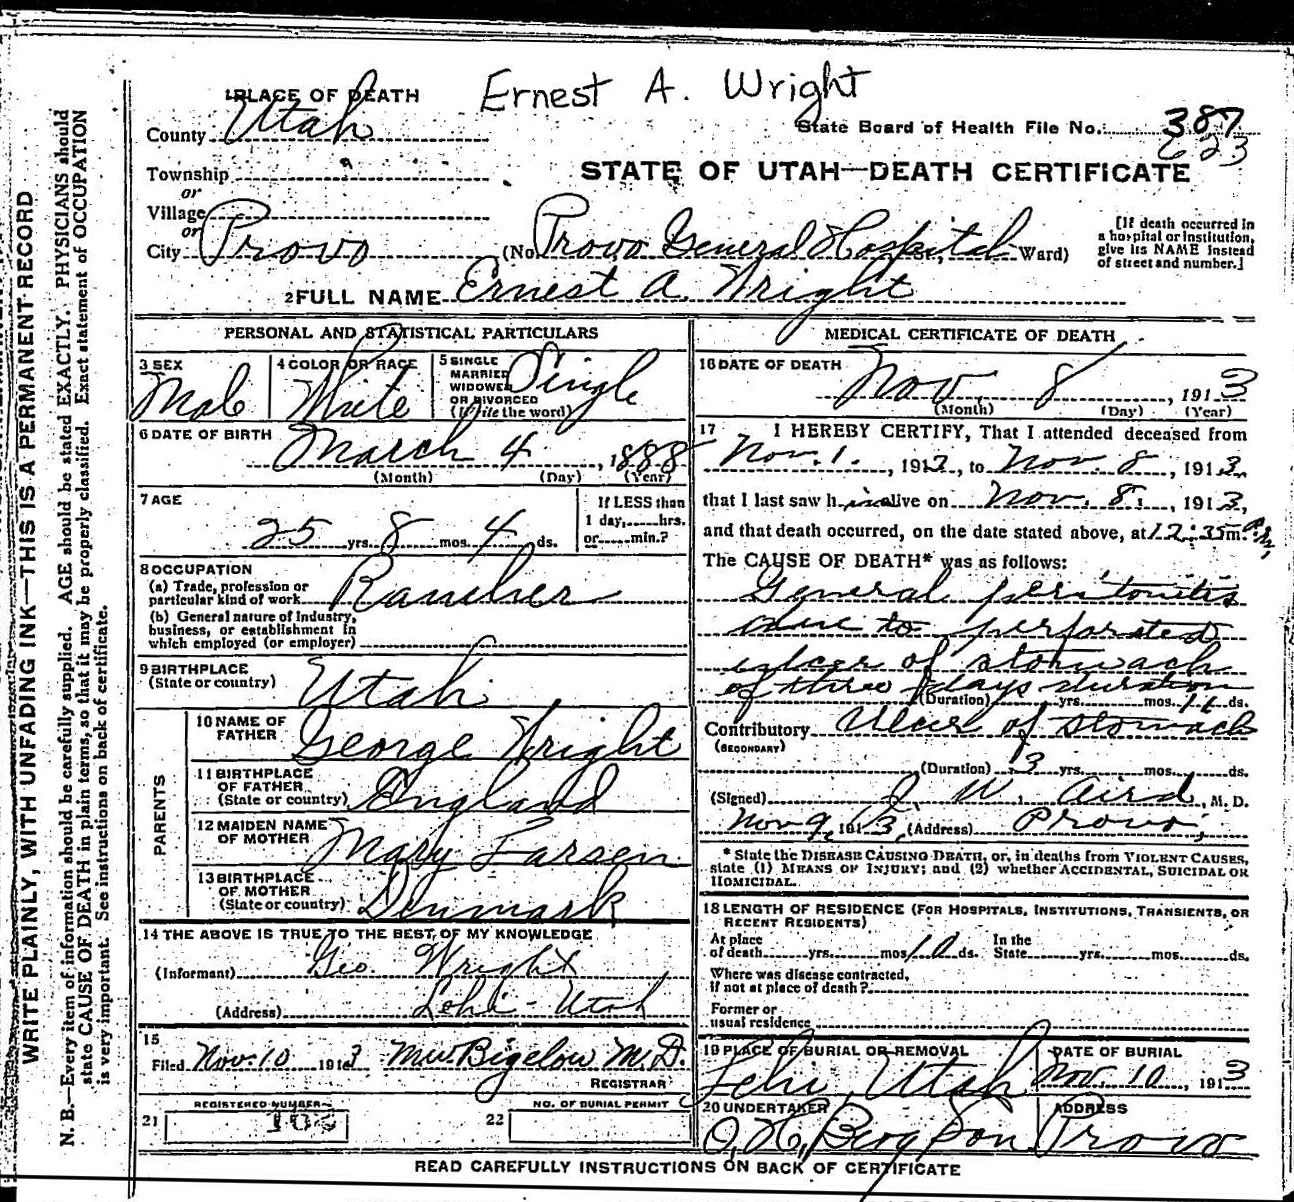 WRITE PLAINLY, WITH UNFADING INK—THIS IS A PERMANENT RECORD
N. B.—Every item of information should be carefully supplied. AGE should be stated EXACTLY. PHYSICIANS should
state CAUSE OF DEATH in plain terms, so that it may be properly classified. Exact statement of OCCUPATION
is very important. See instructions on back of certificate.
Ernest A. Wright
1 PLACE OF DEATH
County Utah
State Board of Health File No. 387
623
Township
or
Village
or
City Provo
STATE OF UTAH—DEATH CERTIFICATE
(No. Provo General Hospital St., Ward)
[If death occurred in
a hospital or institution,
give its NAME instead
of street and number.]
2 FULL NAME Ernest A. Wright
PERSONAL AND STATISTICAL PARTICULARS
3 SEX
Male
4 COLOR OR RACE
White
5 SINGLE
MARRIED
WIDOWED
OR DIVORCED
(Write the word)
Single
6 DATE OF BIRTH
March 4, 1888
(Month) (Day) (Year)
7 AGE
25 yrs. 8 mos. 4 ds.
If LESS than
1 day, hrs.
or min.?
8 OCCUPATION
(a) Trade, profession or
particular kind of work Rancher
(b) General nature of industry,
business, or establishment in
which employed (or employer)
9 BIRTHPLACE
(State or country) Utah
PARENTS
10 NAME OF
FATHER George Wright
11 BIRTHPLACE
OF FATHER
(State or country) England
12 MAIDEN NAME
OF MOTHER Mary Larsen
13 BIRTHPLACE
OF MOTHER
(State or country) Denmark
14 THE ABOVE IS TRUE TO THE BEST OF MY KNOWLEDGE
(Informant) Geo. Wright
(Address) Lehi - Utah
15
Filed Nov. 10 1913 Bigelow M.D.
REGISTRAR
21 REGISTERED NUMBER
22 NO. OF BURIAL PERMIT
MEDICAL CERTIFICATE OF DEATH
16 DATE OF DEATH
Nov 8, 1913
(Month) (Day) (Year)
17 I HEREBY CERTIFY, That I attended deceased from
Nov. 1., 1913, to Nov. 8, 1913,
that I last saw him alive on Nov. 8, 1913,
and that death occurred, on the date stated above, at 12:35 m.
The CAUSE OF DEATH* was as follows:
General peritonitis
due to perforated
ulcer of stomach
of three days duration
(Duration) yrs. mos. ds.
Contributory Ulcer of stomach
(SECONDARY)
(Duration) 3 yrs. mos. ds.
(Signed) J. W. Aird, M. D.
Nov 9, 1913, (Address) Provo,
* State the DISEASE CAUSING DEATH, or, in deaths from VIOLENT CAUSES,
state (1) MEANS OF INJURY; and (2) whether ACCIDENTAL, SUICIDAL OR
HOMICIDAL.
18 LENGTH OF RESIDENCE (FOR HOSPITALS, INSTITUTIONS, TRANSIENTS, OR
RECENT RESIDENTS)
At place
of death yrs. mos. 10 ds.
In the
State yrs. mos. ds.
Where was disease contracted,
if not at place of death?
Former or
usual residence
19 PLACE OF BURIAL OR REMOVAL
Lehi, Utah
DATE OF BURIAL
Nov. 10, 1913
20 UNDERTAKER
O. H. Berg & Son
ADDRESS
Provo
READ CAREFULLY INSTRUCTIONS ON BACK OF CERTIFICATE